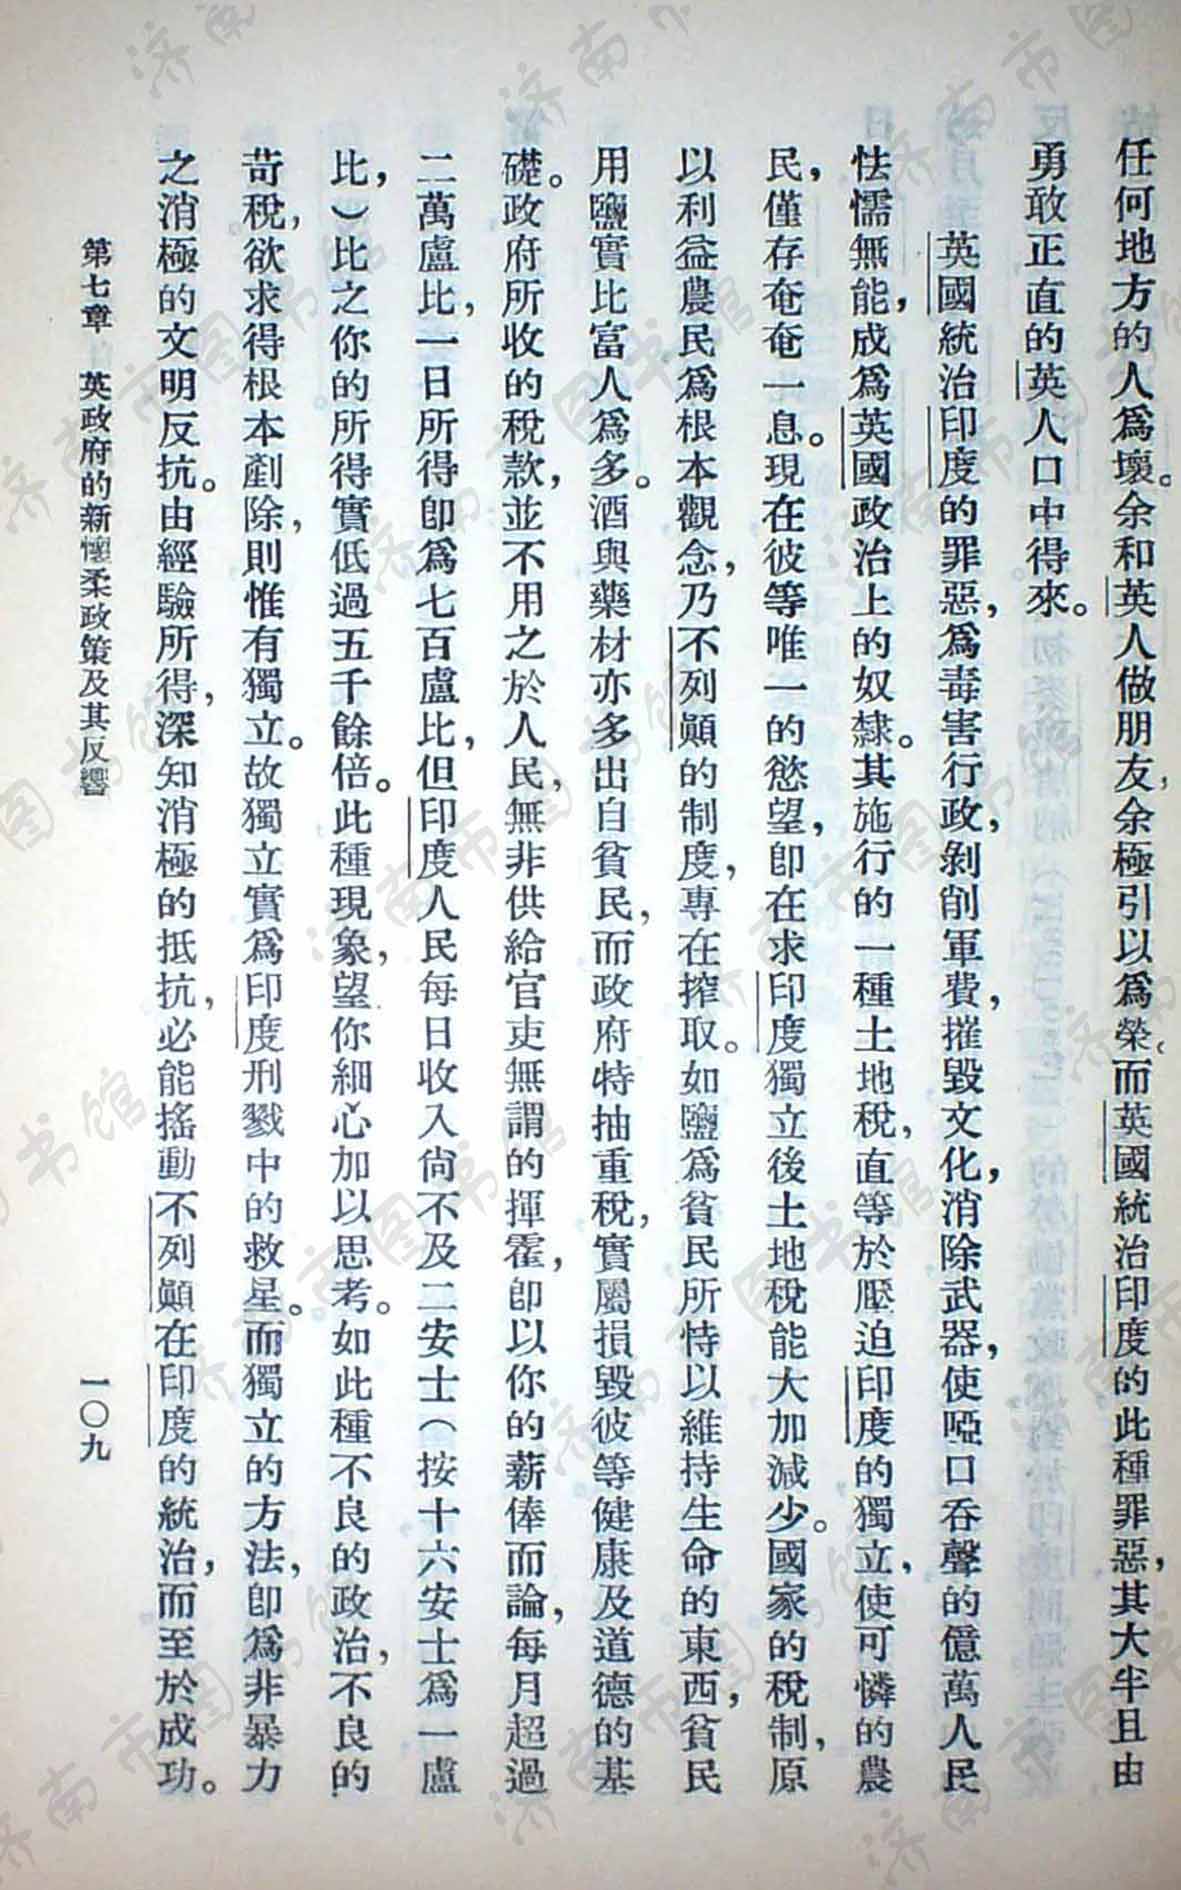 任何地方的人爲壞。余和英人做朋友，余極引以爲榮。而英國統治印度的此種罪惡，其大半且由
勇敢正直的英人口中得來。
英國統治印度的罪惡，爲毒害行政，剝削軍費，摧毀文化，消除武器，使啞口吞聲的億萬人民
怯懦無能，成爲英國政治上的奴隸。其施行的一種土地稅，直等於壓迫印度的獨立，使可憐的農
民，僅存奄奄一息。現在彼等唯一的慾望，卽在求印度獨立後土地稅能大加減少。國家的稅制，原
以利益農民爲根本觀念，乃不列顚的制度，專在搾取。如鹽爲貧民所恃以維持生命的東西，貧民
用鹽實比富人爲多。酒與藥材亦多出自貧民，而政府特抽重稅，實屬損毀彼等健康及道德的基
礎。政府所收的稅款，並不用之於人民，無非供給官吏無謂的揮霍，卽以你的薪俸而論，每月超過
二萬盧比，一日所得卽爲七百盧比，但印度人民每日收入尙不及二安士（按十六安士爲一盧
比，）比之你的所得實低過五千餘倍。此種現象，望你細心加以思考。如此種不良的政治，不良的
苛稅，欲求得根本剷除，則惟有獨立。故獨立實爲印度刑戮中的救星。而獨立的方法，卽爲非暴力
之消極的文明反抗。由經驗所得，深知消極的抵抗，必能搖動不列顚在印度的統治，而至於成功。
第七章　英政府的新懷柔政策及其反響
一〇九
济南市图书馆